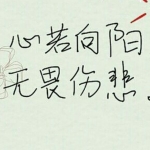 心若向阳
无畏伤悲。